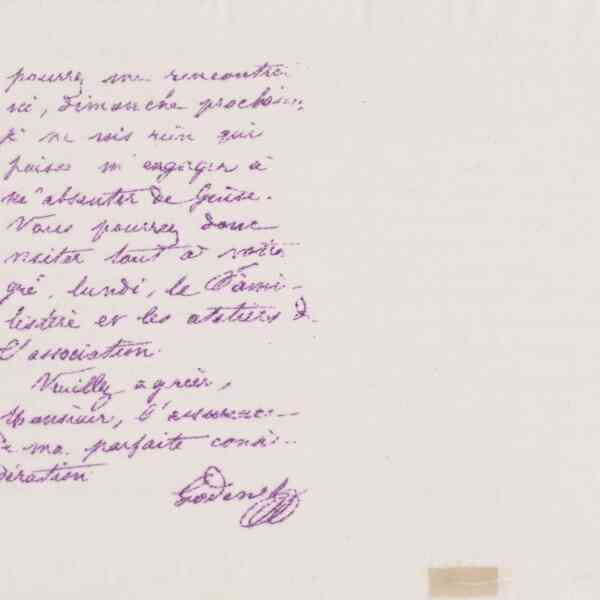 pourrez me rencontrer
ici, dimanche prochain,
je ne vois rien qui
puisse m'engager à
m'absenter de Guise.
Vous pourrez donc
visiter tout à votre
gré, lundi, le Fami-
listère et les ateliers de
l'association.
Veuillez agréer,
Monsieur, l'assurance
de ma parfaite consi-
dération
Godin